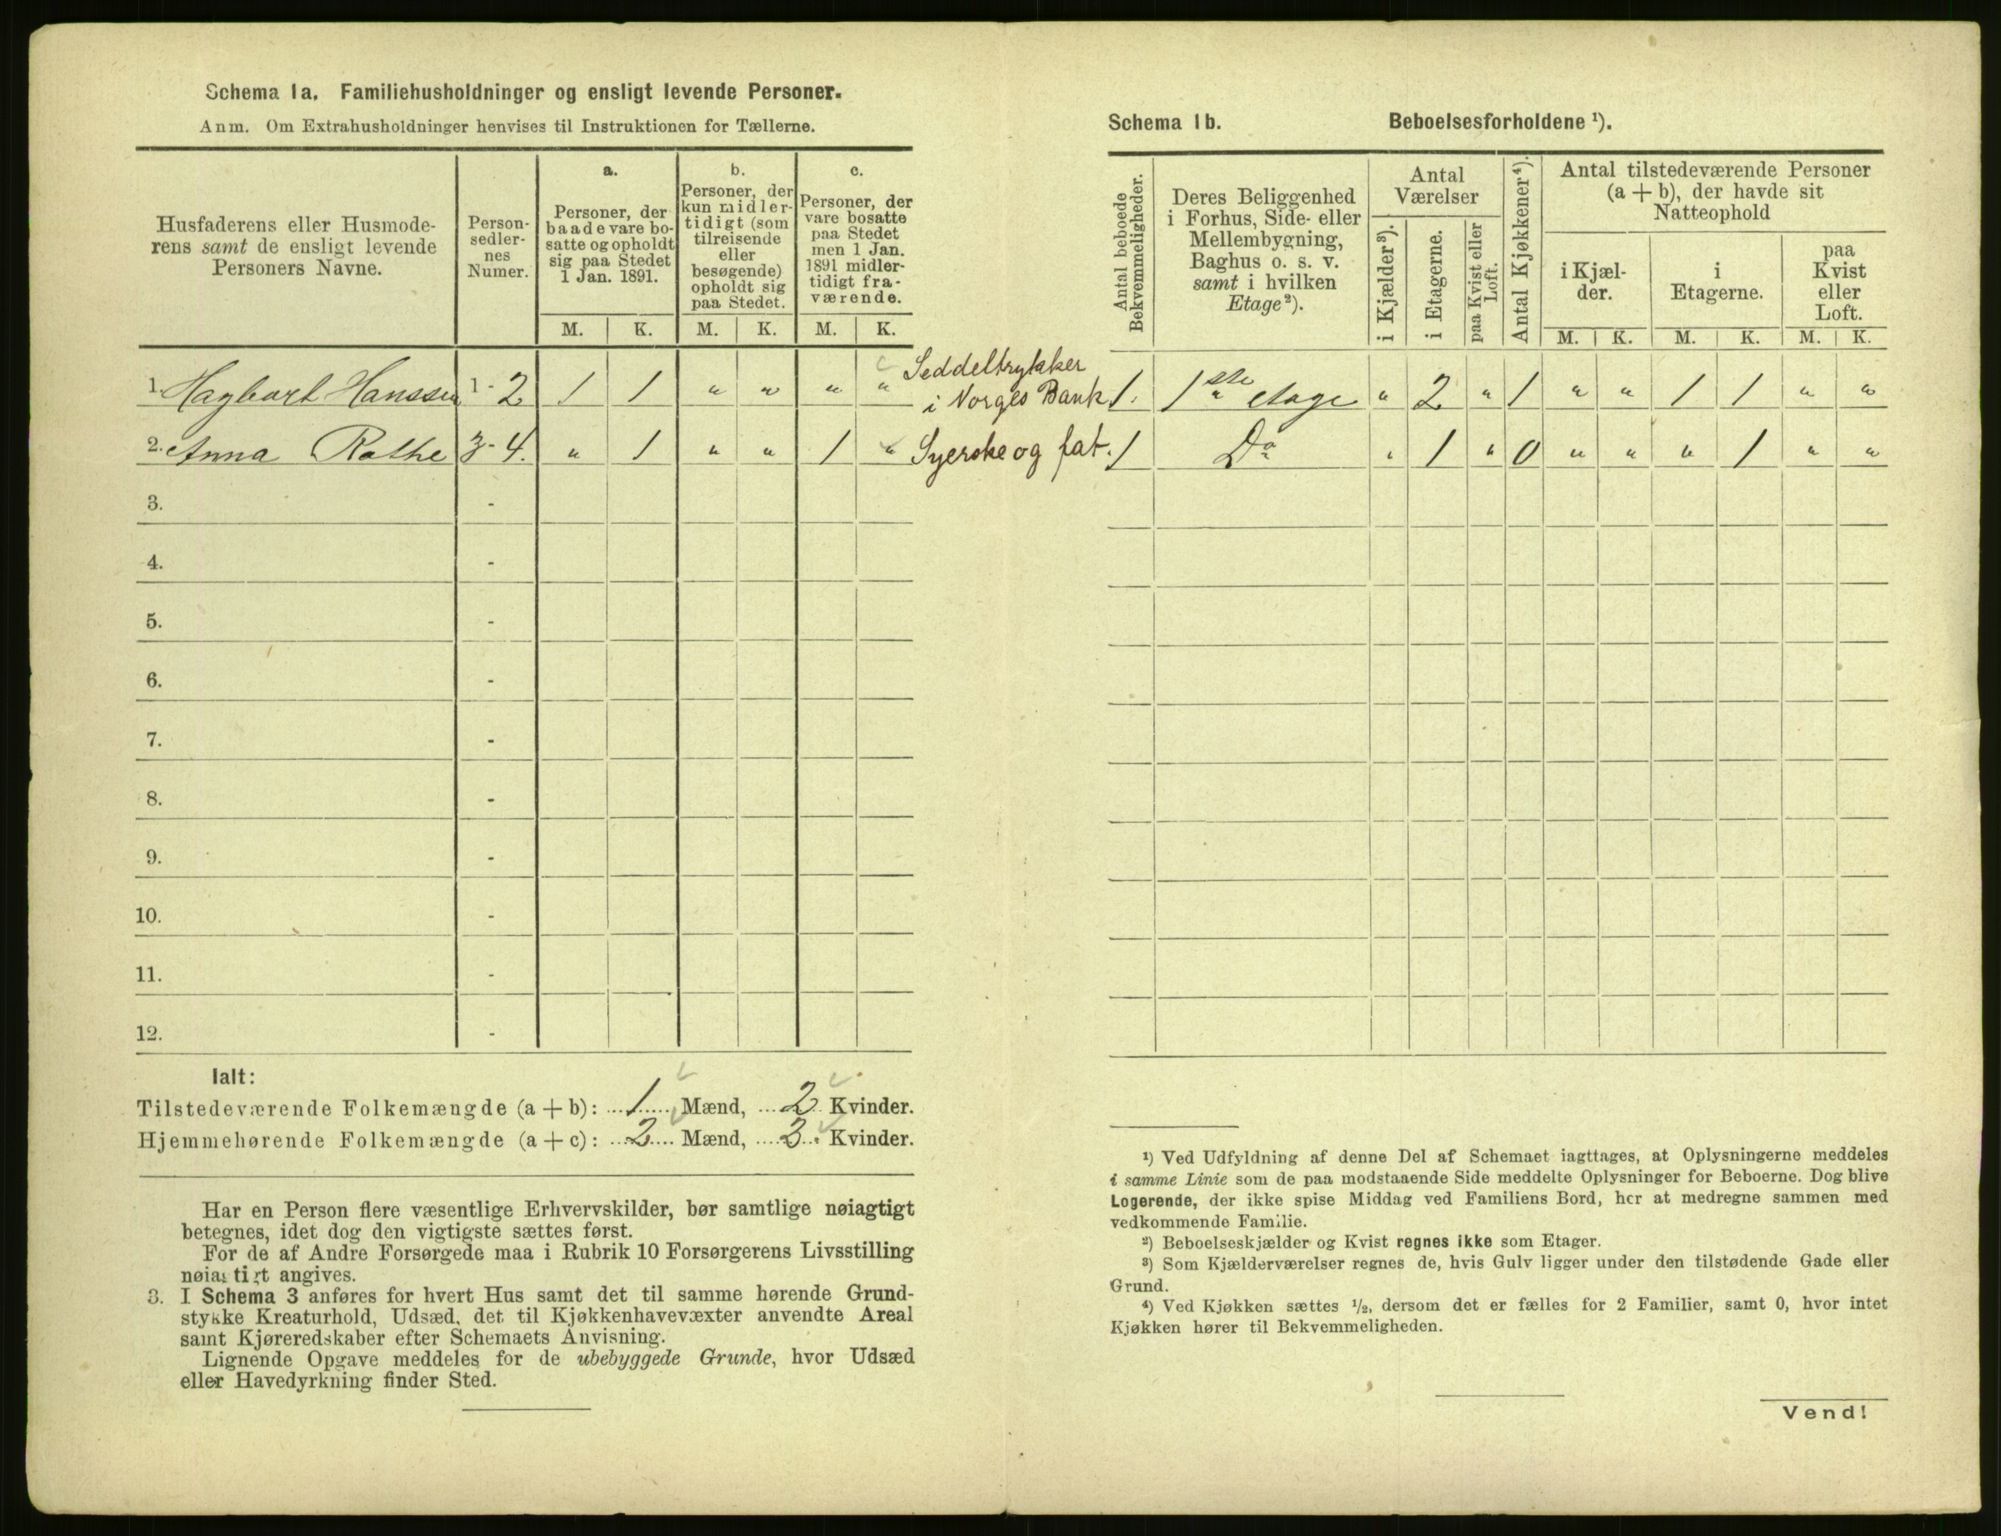 Schema 1a. Familiehusholdninger og ensligt levende Personer.
Anm. Om Extrahusholdninger henvises til Instruktionen for Tællerne.
Husfaderens eller Husmode-
rens samt de ensligt levende
Personers Navne.
Person-
sedler-
nes
Numer.
a.
Personer, der
baade vare bo-
satte og opholdt
sig paa Stedet
1 Jan. 1891.
b.
Personer, der
kun midler-
tidigt (som
tilreisende
eller
besøgende)
opholdt sig
paa Stedet.
c.
Personer, der
vare bosatte
paa Stedet
men 1 Jan.
1891 midler-
tidigt fra-
værende.
M. K. M. K. M. K.
1. Hagbart Hanssen 1-2 1 1 " " " " Seddeltrykker
i Norges Bank
2. Anna Rothe 3-4. " 1 " " 1 " Syerske og fat.
3. -
4. -
5. -
6. -
7. -
8. -
9. -
10. -
11. -
12. -
Ialt:
Tilstedeværende Folkemængde (a + b): 1 Mænd, 2 Kvinder.
Hjemmehørende Folkemængde (a + c): 2 Mænd, 3. Kvinder.
Har en Person flere væsentlige Erhvervskilder, bør samtlige nøiagtigt
betegnes, idet dog den vigtigste sættes først.
For de af Andre Forsørgede maa i Rubrik 10 Forsørgerens Livsstilling
nøiagtigt angives.
3. I Schema 3 anføres for hvert Hus samt det til samme hørende Grund-
stykke Kreaturhold, Udsæd, det til Kjøkkenhavevæxter anvendte Areal
samt Kjøreredskaber efter Schemaets Anvisning.
Lignende Opgave meddeles for de ubebyggede Grunde, hvor Udsæd
eller Havedyrkning finder Sted.
Schema 1b. Beboelsesforholdene ¹).
Antal beboede
Bekvemmeligheder.
Deres Beliggenhed
i Forhus, Side- eller
Mellembygning,
Baghus o. s. v.
samt i hvilken
Etage²).
Antal
Værelser
i Kjælder³).
i Etagerne.
paa Kvist eller
Loft.
Antal Kjøkkener⁴).
Antal tilstedeværende Personer
(a + b), der havde sit
Natteophold
i Kjæl-
der.
i
Etagerne.
paa
Kvist
eller
Loft.
M. K. M. K. M. K.
1. 1ste etage " 2 " 1 " " 1 1 " "
1 Do " 1 " 0 " " " 1 " "
¹) Ved Udfyldning af denne Del af Schemaet iagttages, at Oplysningerne meddeles
i samme Linie som de paa modstaaende Side meddelte Oplysninger for Beboerne. Dog blive
Logerende, der ikke spise Middag ved Familiens Bord, her at medregne sammen med
vedkommende Familie.
²) Beboelseskjælder og Kvist regnes ikke som Etager.
³) Som Kjælderværelser regnes de, hvis Gulv ligger under den tilstødende Gade eller
Grund.
⁴) Ved Kjøkken sættes ½, dersom det er fælles for 2 Familier, samt 0, hvor intet
Kjøkken hører til Bekvemmeligheden.
Vend!